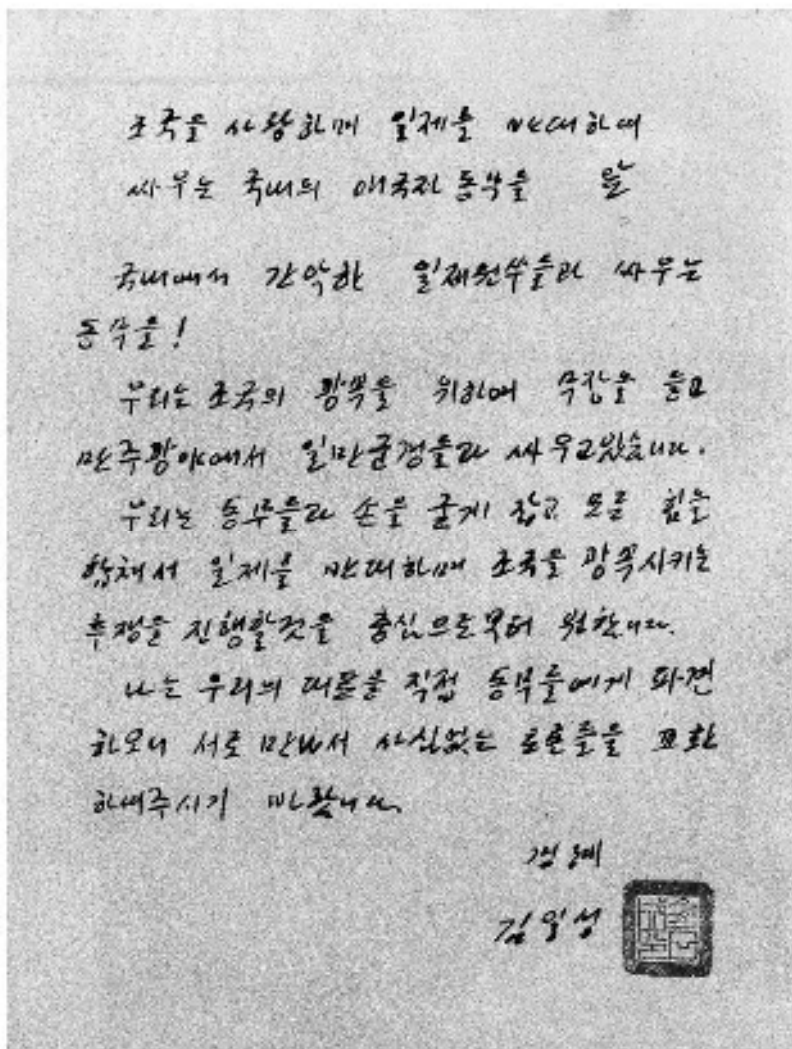 조국을 사랑하며 일제를 반대하여
싸우는 국내의 애국자 동무들 앞
국내에서 간악한 일제원쑤들과 싸우는
동무들!
우리는 조국의 광복을 위하여 무장을 들고
만주광야에서 일만군경들과 싸우고있습니다.
우리는 동무들과 손을 굳게 잡고 모든 힘을
합쳐서 일제를 반대하며 조국을 광복시키는
투쟁을 진행할것을 충심으로부터 원합니다.
나는 우리의 대표를 직접 동무들에게 파견
하오니 서로 만나서 사심없는 토론들을 교환
하여주시기 바랍니다.
경례
김일성